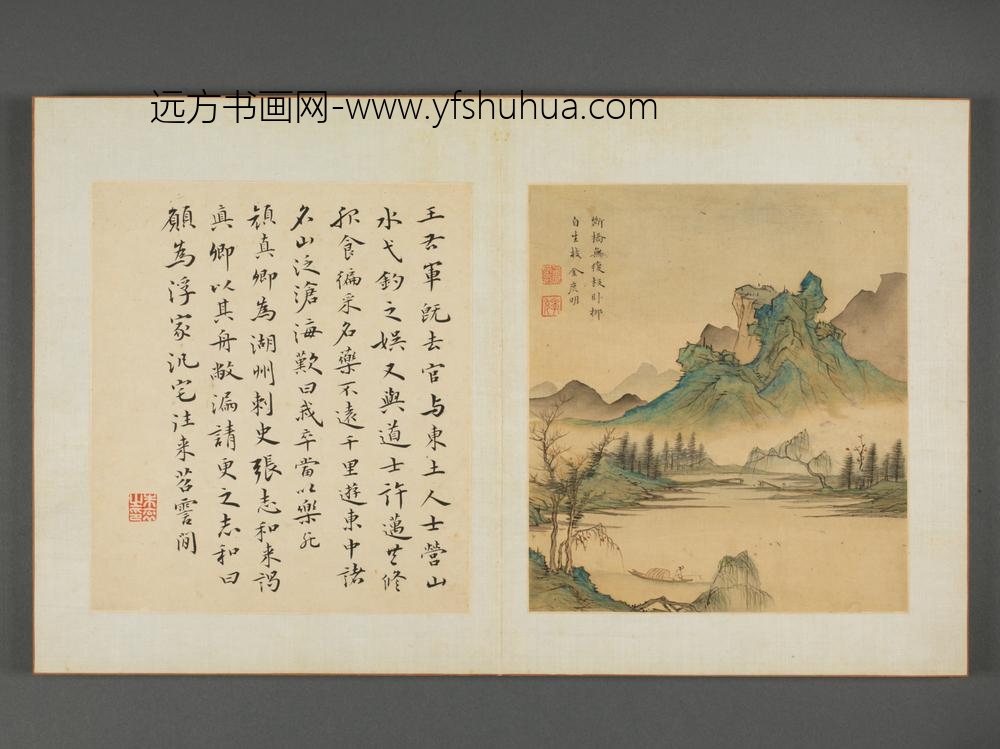 远方书画网-www.yfshuhua.com
斷橋無復板臥柳
自生枝
王右軍既去官与東土人士營山
水弋釣之娱又與道士許邁共修
服食徧采名藥不遠千里遊東中諸
名山泛滄海歎曰我卒當以樂死
顔真卿為湖州刺史張志和来謁
真卿以其舟敝漏請更之志和曰
願為浮家汎宅往来苕霅間